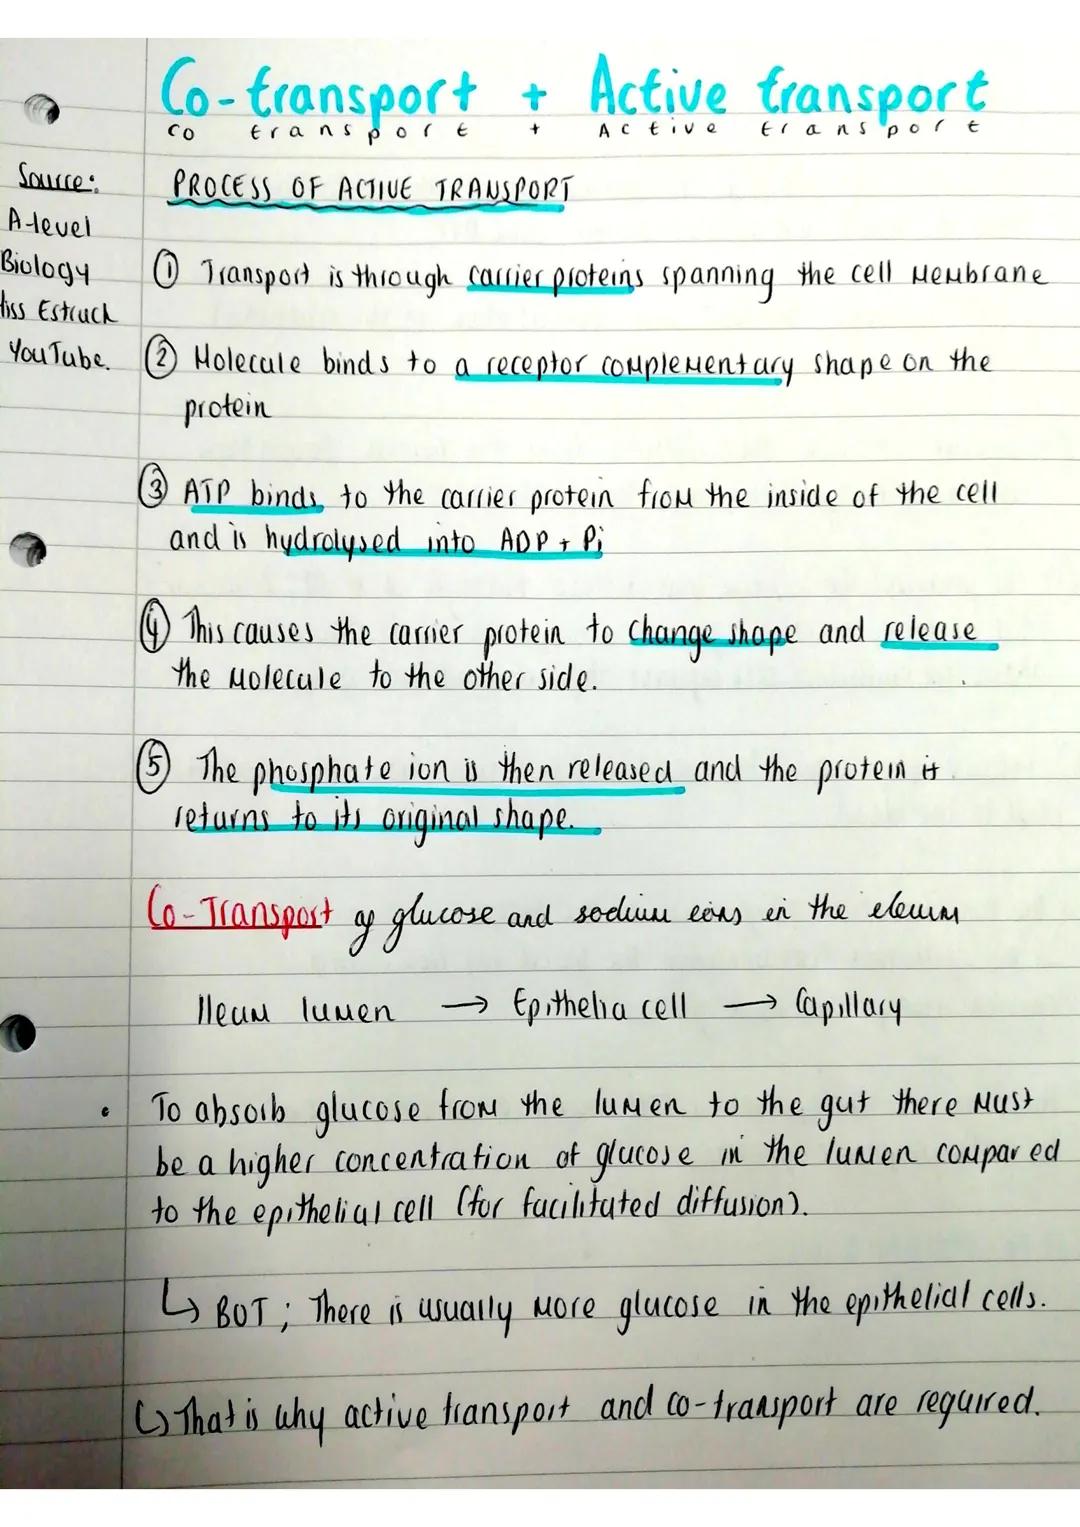 Co-transport + Active transport
co transport + Active transport
Source:
A-level
Biology
Miss Estruch
YouTube.
PROCESS OF ACTIVE TRANSPORT
① Transport is through carrier proteins spanning the cell membrane
② Molecule binds to a receptor complementary shape on the
protein
③ ATP binds to the carrier protein from the inside of the cell
and is hydrolysed into ADP + Pi
④ This causes the carrier protein to change shape and release
the molecule to the other side.
⑤ The phosphate ion is then released and the protein it
returns to its original shape.
Co-Transport of glucose and sodium ions in the eleum
Ileum lumen → Epithelia cell → Capillary
• To absorb glucose from the lumen to the gut there must
be a higher concentration of glucose in the lumen compared
to the epithelial cell (for facilitated diffusion).
↳ BUT; There is usually more glucose in the epithelial cells.
↳ That is why active transport and co-transport are required.